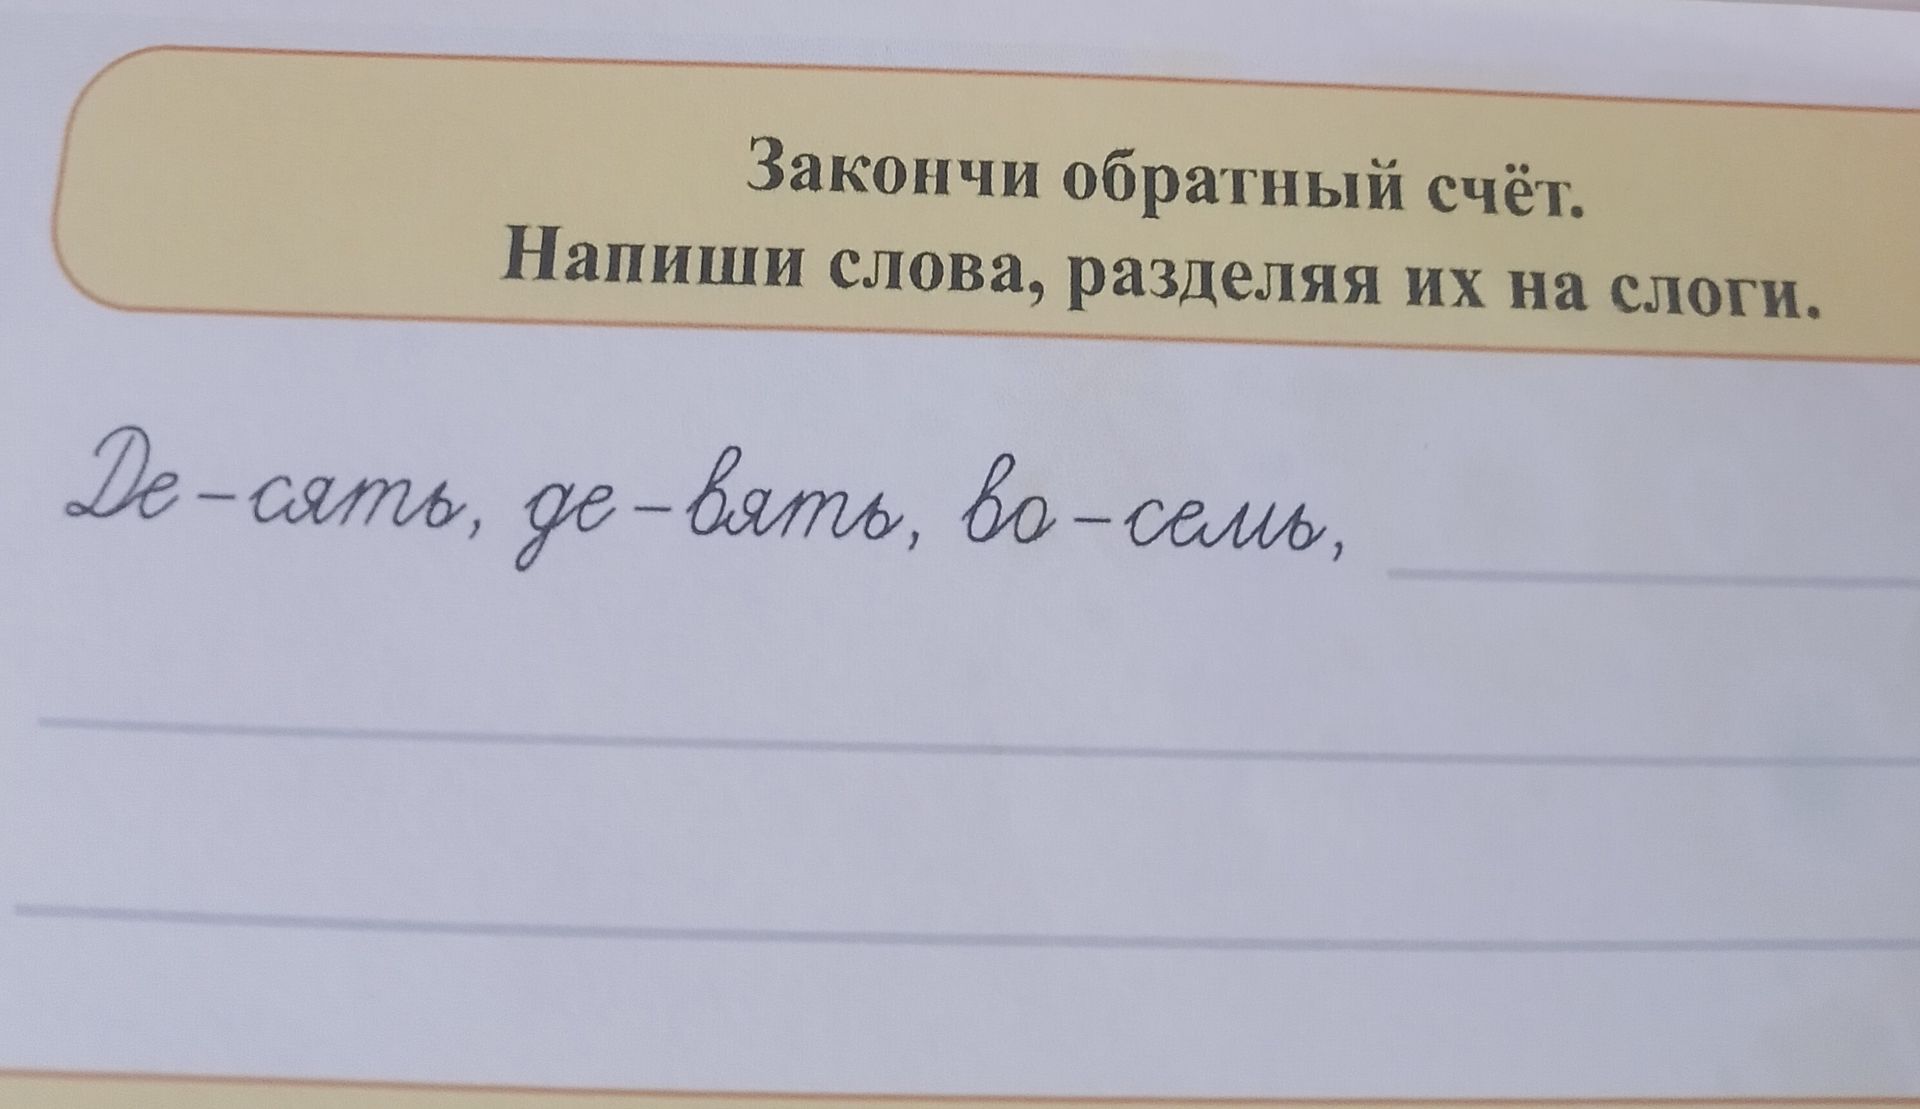 Закончи обратный счёт.
Напиши слова, разделяя их на слоги.
Де-сять, де-вять, во-семь,